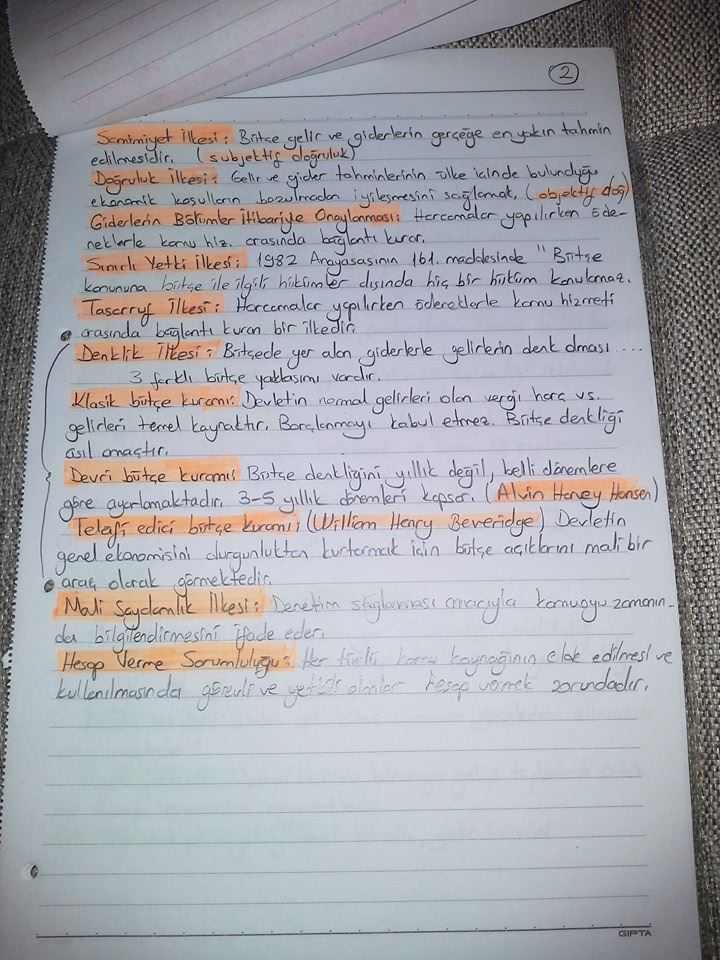 2
Samimiyet İlkesi: Bütçe gelir ve giderlerin gerçeğe en yakın tahmin
edilmesidir. (subjektif doğruluk)
Doğruluk İlkesi: Gelir ve gider tahminlerinin ülke içinde bulunduğu
ekonomik koşulların bozulmadan iyileşmesini sağlamak. (objektif doğ)
Giderlerin Bölümler İtibariyle Onaylanması: Harcamalar yapılırken öde-
neklerle kamu hiz. arasında bağlantı kurar.
Sınırlı Yetki İlkesi: 1982 Anayasasının 161. maddesinde "Bütçe
kanununa bütçe ile ilgili hükümler dışında hiç bir hüküm konulamaz.
Tasarruf İlkesi: Harcamalar yapılırken ödeneklerle kamu hizmeti
arasında bağlantı kuran bir ilkedir.
Denklik İlkesi: Bütçede yer alan giderlerle gelirlerin denk olması ....
3 farklı bütçe yaklaşımı vardır.
Klasik bütçe kuramı: Devletin normal gelirleri olan vergi harç vs.
gelirleri temel kaynaktır. Borçlanmayı kabul etmez. Bütçe denkliği
asıl amaçtır.
Devri bütçe kuramı: Bütçe denkliğini yıllık değil, belli dönemlere
göre ayarlamaktadır. 3-5 yıllık dönemleri kapsar. (Alvin Harvey Hansen)
Telafi edici bütçe kuramı: (William Henry Beveridge) Devletin
genel ekonomisini durgunluktan kurtarmak için bütçe açıklarını mali bir
araç olarak görmektedir.
Mali Saydamlık İlkesi: Denetim sağlanması amacıyla kamuoyu zamanın-
da bilgilendirmesini ifade eder.
Hesap Verme Sorumluluğu: Her türlü kamu kaynağının elde edilmesi ve
kullanılmasında görevli ve yetkili olanlar hesap vermek zorundadır.
GIPTA